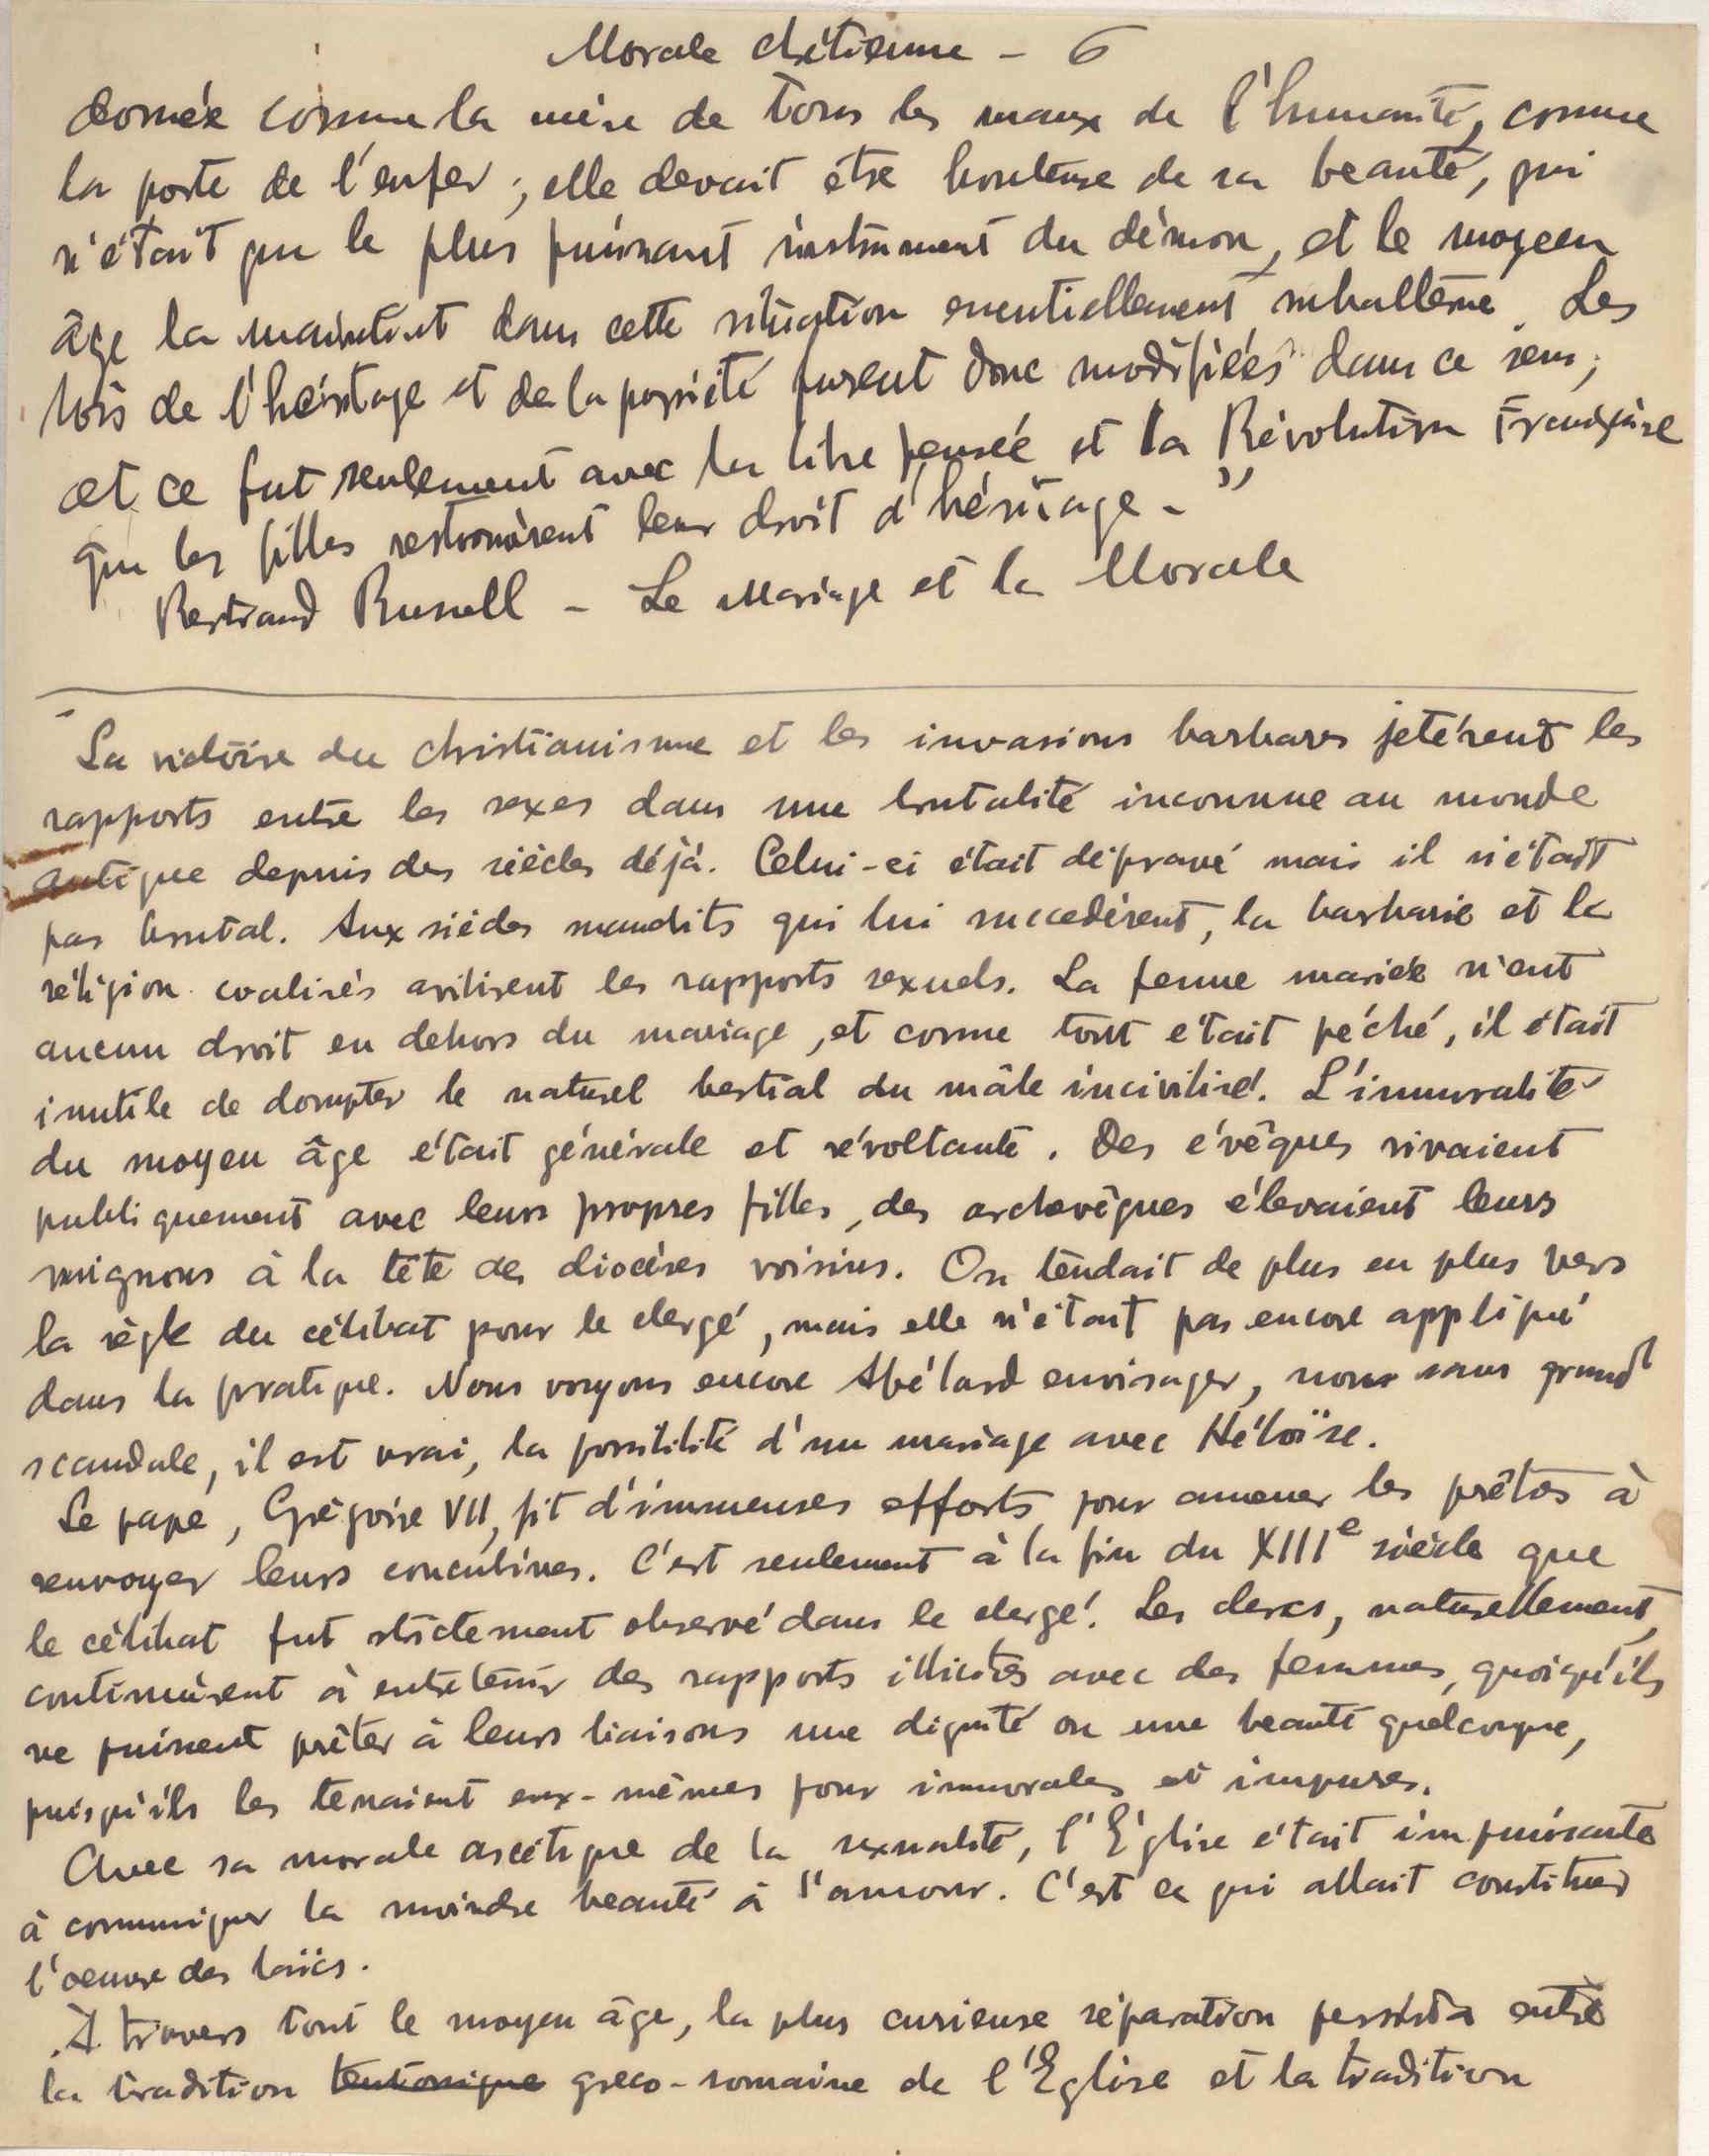 Morale chrétienne - 6
donnée comme la mère de tous les maux de l'humanité, comme
la porte de l'enfer ; elle devait être honteuse de sa beauté, qui
n'était que le plus puissant instrument du démon, et le moyen
âge la maintint dans cette situation essentiellement subalterne. Les
lois de l'héritage et de la propriété furent donc modifiées dans ce sens ;
et ce fut seulement avec la libre pensée et la Révolution Française
que les filles retrouvèrent leur droit d'héritage. "
Bertrand Russell - Le Mariage et la Morale
La victoire du christianisme et les invasions barbares jetèrent les
rapports entre les sexes dans une brutalité inconnue au monde
antique depuis des siècles déjà. Celui-ci était dépravé mais il n'était
pas brutal. Aux siècles maudits qui lui succedèrent, la barbarie et la
réligion coalisés avilirent les rapports sexuels. La femme mariée n'eut
aucun droit en dehors du mariage, et comme tout était péché, il était
inutile de dompter le naturel bestial du mâle incivilisé. L'immoralité
du moyen âge était générale et révoltante. Des évêques vivaient
publiquement avec leurs propres filles, des archevêques élevaient leurs
mignons à la tête des diocèses voisins. On tendait de plus en plus vers
la règle du célibat pour le clergé, mais elle n'était pas encore appliqué
dans la pratique. Nous voyons encore Abélard envisager, non sans grand
scandale, il est vrai, la possibilité d'un mariage avec Héloïse.
Le pape, Grégoire VII, fit d'immenses efforts pour amener les prêtres à
renvoyer leurs concubines. C'est seulement à la fin du XIIIe siècle que
le célibat fut strictement observé dans le clergé. Les clercs, naturellement,
continuèrent à entretenir des rapports illicites avec des femmes, quoiqu'ils
ne puissent prêter à leurs liaisons une dignité ou une beauté quelconque,
puisqu'ils les tenaient eux-mêmes pour immorales et impures.
Avec sa morale ascétique de la sexualité, l'Église était impuissante
à communiquer la moindre beauté à l'amour. C'est ce qui allait constituer
l'oeuvre des laïcs.
A travers tout le moyen âge, la plus curieuse séparation persista entre
la tradition teutonique greco-romaine de l'Eglise et la tradition